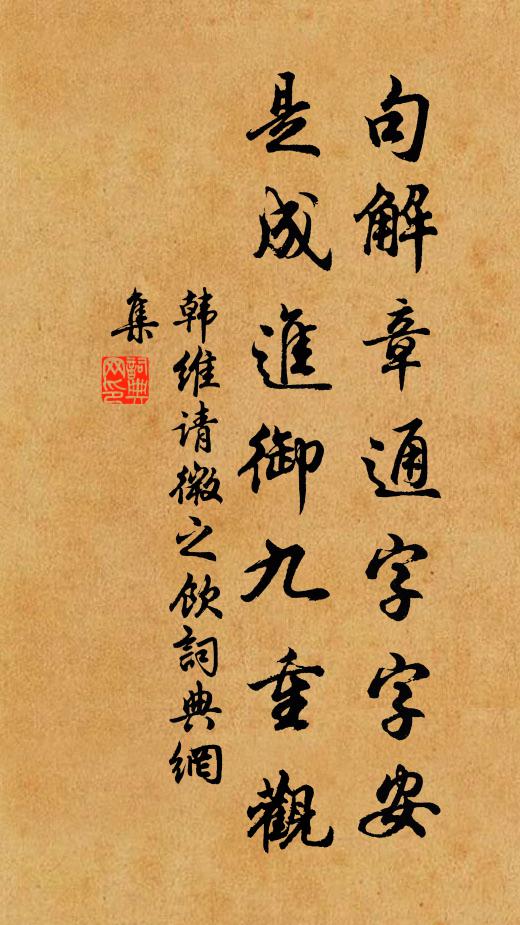 句解章通字字安
是成進御九重觀
韩维请微之饮詞典網
集
詞典网印